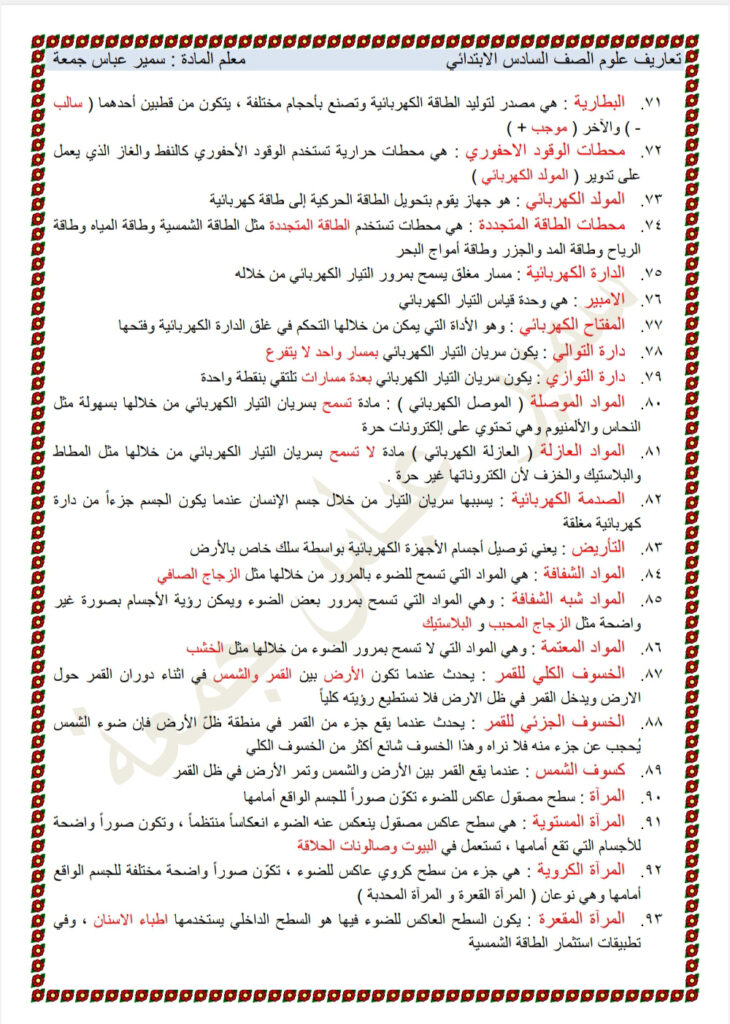 تعاريف علوم الصف السادس الابتدائي معلم المادة : سمير عباس جمعة
٧١. البطارية : هي مصدر لتوليد الطاقة الكهربائية وتصنع بأحجام مختلفة ، يتكون من قطبين أحدهما ( سالب
- ) والآخر ( موجب + )
٧٢. محطات الوقود الاحفوري : هي محطات حرارية تستخدم الوقود الأحفوري كالنفط والغاز الذي يعمل
على تدوير ( المولد الكهربائي )
٧٣. المولد الكهربائي : هو جهاز يقوم بتحويل الطاقة الحركية إلى طاقة كهربائية
٧٤. محطات الطاقة المتجددة : هي محطات تستخدم الطاقة المتجددة مثل الطاقة الشمسية وطاقة المياه وطاقة
الرياح وطاقة المد والجزر وطاقة أمواج البحر
٧٥. الدارة الكهربائية : مسار مغلق يسمح بمرور التيار الكهربائي من خلاله
٧٦. الامبير : هي وحدة قياس التيار الكهربائي
٧٧. المفتاح الكهربائي : وهو الأداة التي يمكن من خلالها التحكم في غلق الدارة الكهربائية وفتحها
٧٨. دارة التوالي : يكون سريان التيار الكهربائي بمسار واحد لا يتفرع
٧٩. دارة التوازي : يكون سريان التيار الكهربائي بعدة مسارات تلتقي بنقطة واحدة
٨٠. المواد الموصلة ( الموصل الكهربائي ) : مادة تسمح بسريان التيار الكهربائي من خلالها بسهولة مثل
النحاس والألمنيوم وهي تحتوي على إلكترونات حرة
٨١. المواد العازلة ( العازلة الكهربائي ) مادة لا تسمح بسريان التيار الكهربائي من خلالها مثل المطاط
والبلاستيك والخزف لأن الكتروناتها غير حرة .
٨٢. الصدمة الكهربائية : يسببها سريان التيار من خلال جسم الإنسان عندما يكون الجسم جزءاً من دارة
كهربائية مغلقة
٨٣. التأريض : يعني توصيل أجسام الأجهزة الكهربائية بواسطة سلك خاص بالأرض
٨٤. المواد الشفافة : هي المواد التي تسمح للضوء بالمرور من خلالها مثل الزجاج الصافي
٨٥. المواد شبه الشفافة : وهي المواد التي تسمح بمرور بعض الضوء ويمكن رؤية الأجسام بصورة غير
واضحة مثل الزجاج المحبب و البلاستيك
٨٦. المواد المعتمة : وهي المواد التي لا تسمح بمرور الضوء من خلالها مثل الخشب
٨٧. الخسوف الكلي للقمر : يحدث عندما تكون الأرض بين القمر والشمس في اثناء دوران القمر حول
الارض ويدخل القمر في ظل الارض فلا نستطيع رؤيته كلياً
٨٨. الخسوف الجزئي للقمر : يحدث عندما يقع جزء من القمر في منطقة ظلّ الأرض فإن ضوء الشمس
يُحجب عن جزء منه فلا نراه وهذا الخسوف شائع أكثر من الخسوف الكلي
٨٩. كسوف الشمس : عندما يقع القمر بين الأرض والشمس وتمر الأرض في ظل القمر
٩٠. المرآة : سطح مصقول عاكس للضوء تكوّن صوراً للجسم الواقع أمامها
٩١. المرآة المستوية : هي سطح عاكس مصقول ينعكس عنه الضوء انعكاساً منتظماً ، وتكون صوراً واضحة
للأجسام التي تقع أمامها ، تستعمل في البيوت وصالونات الحلاقة
٩٢. المرآة الكروية : هي جزء من سطح كروي عاكس للضوء ، تكوّن صوراً واضحة مختلفة للجسم الواقع
أمامها وهي نوعان ( المرآة القعرة و المرآة المحدبة )
٩٣. المرآة المقعرة : يكون السطح العاكس للضوء فيها هو السطح الداخلي يستخدمها اطباء الاسنان ، وفي
تطبيقات استثمار الطاقة الشمسية
سمير عباس جمعة